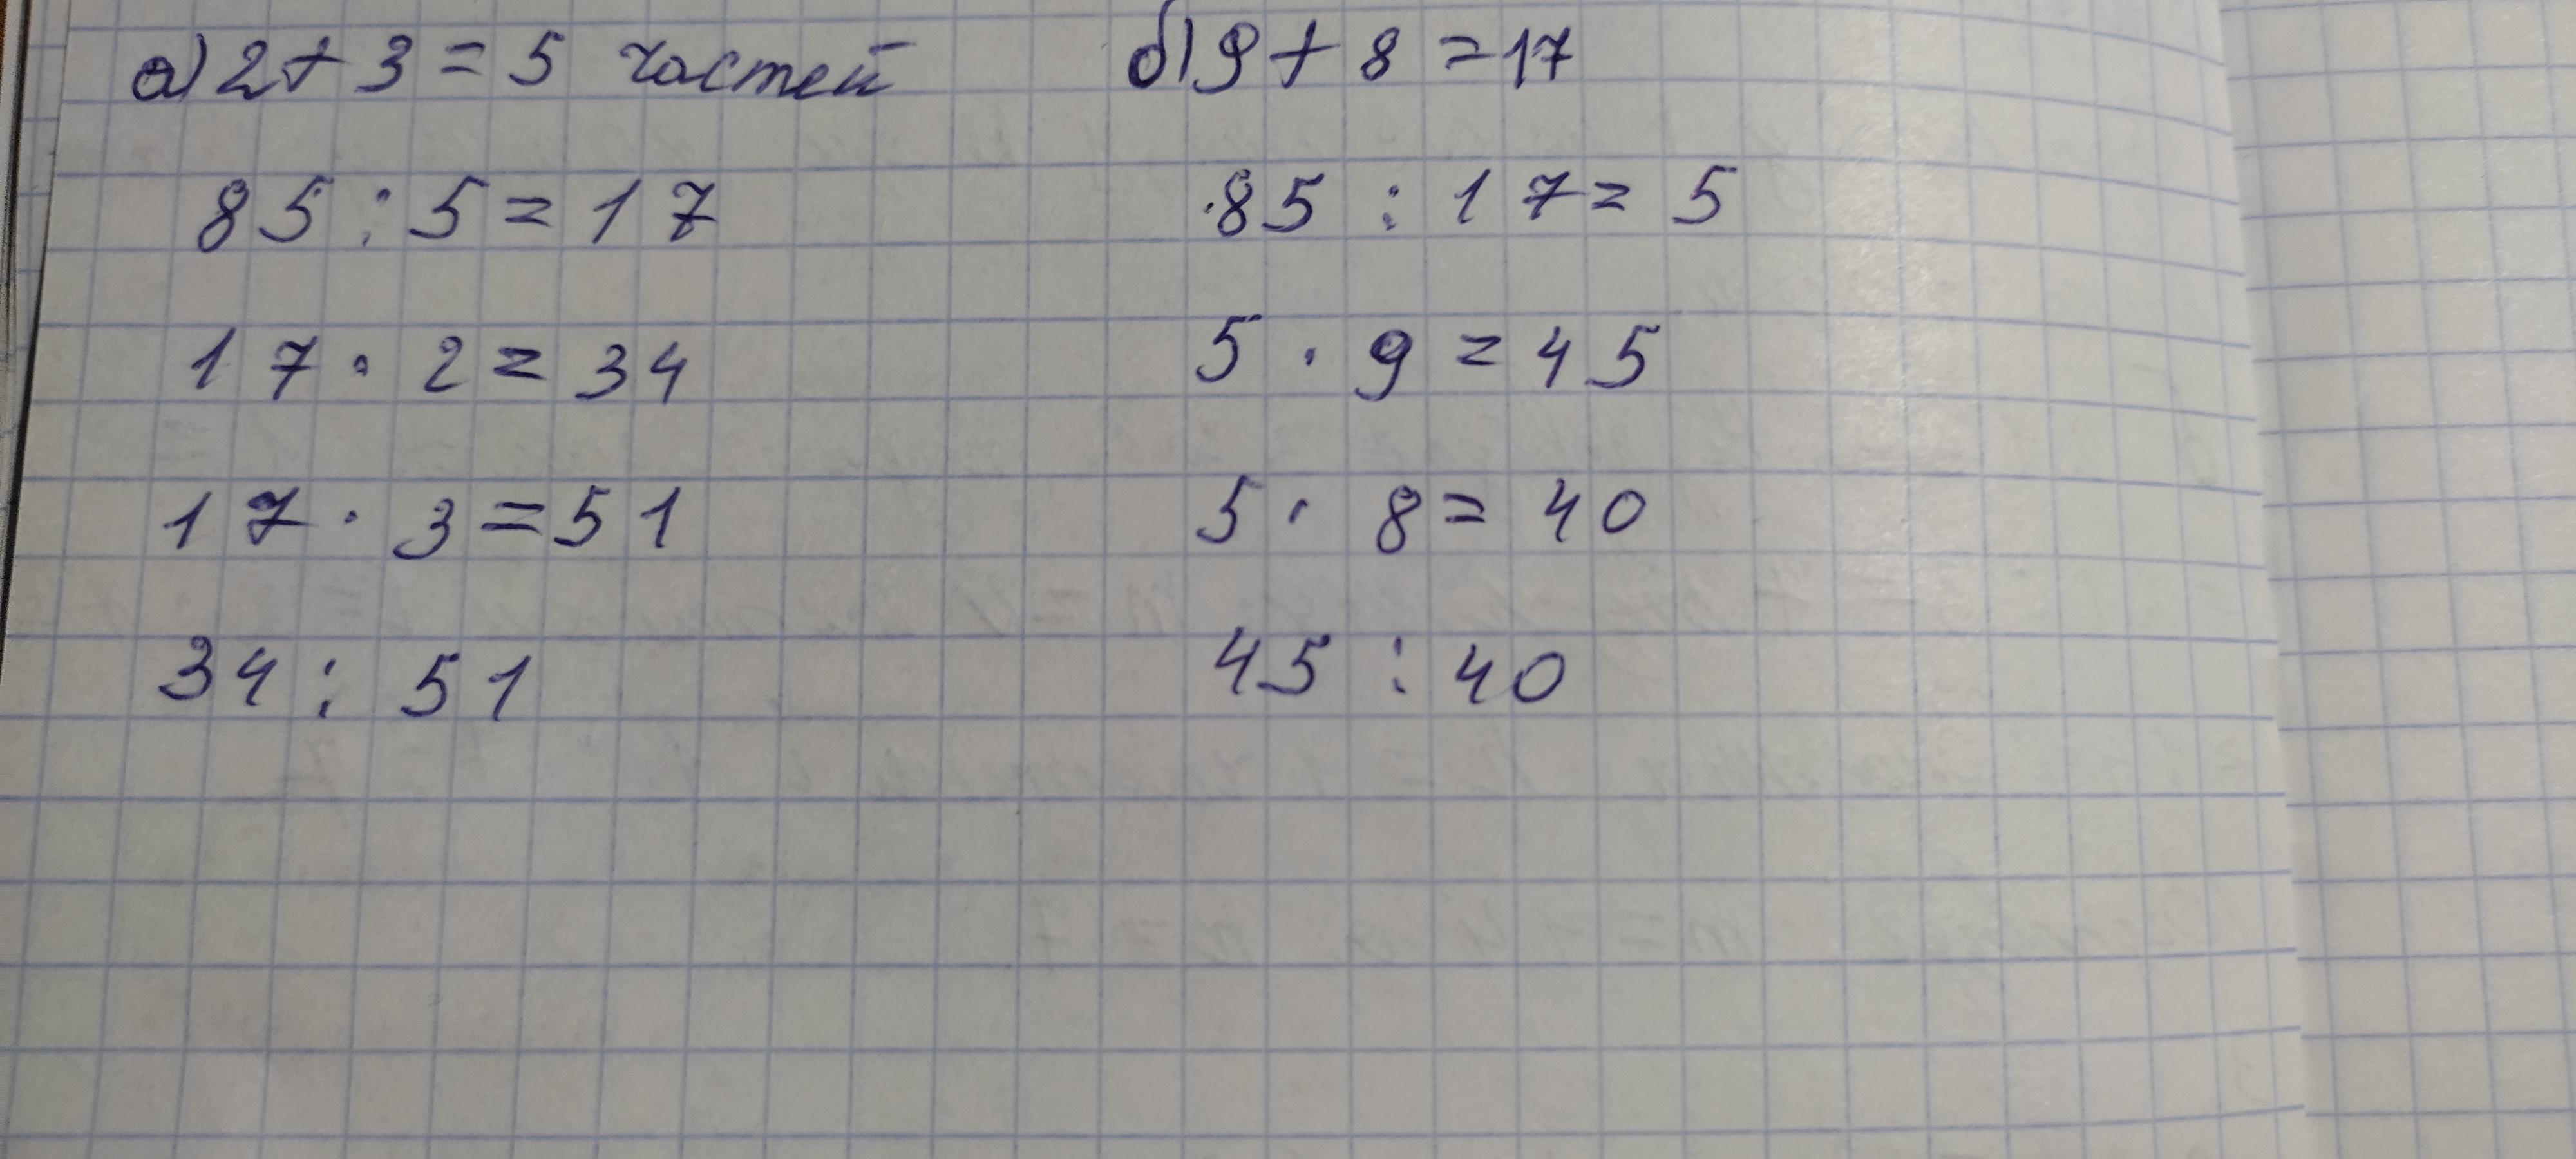 а) 2 + 3 = 5 частей
85 : 5 = 17
17 · 2 = 34
17 · 3 = 51
34 : 51
б) 9 + 8 = 17
85 : 17 = 5
5 · 9 = 45
5 · 8 = 40
45 : 40